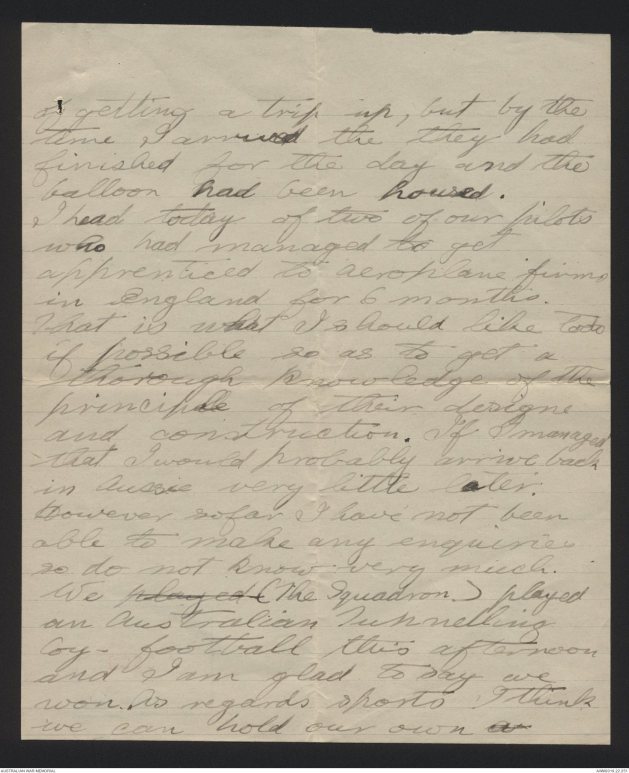 of getting a trip up, but by the
time I arrived the they had
finished for the day and the
balloon had been housed.
I head today of two of our pilots
who had managed to get
apprenticed to aeroplane firms
in England for 6 months.
That is what I should like to do
if possible so as to get a
thorough knowledge of the
principle of their designe
and construction. If I managed
that I would probably arrive back
in Aussie very little later.
However so far I have not been
able to make any enquiries
so do not know very much.
We played (The Squadron.) played
an Australian Tunnelling
Coy- football this afternoon
and I am glad to say we
won. As regards sports I think
we can hold our own a
AUSTRALIAN WAR MEMORIAL